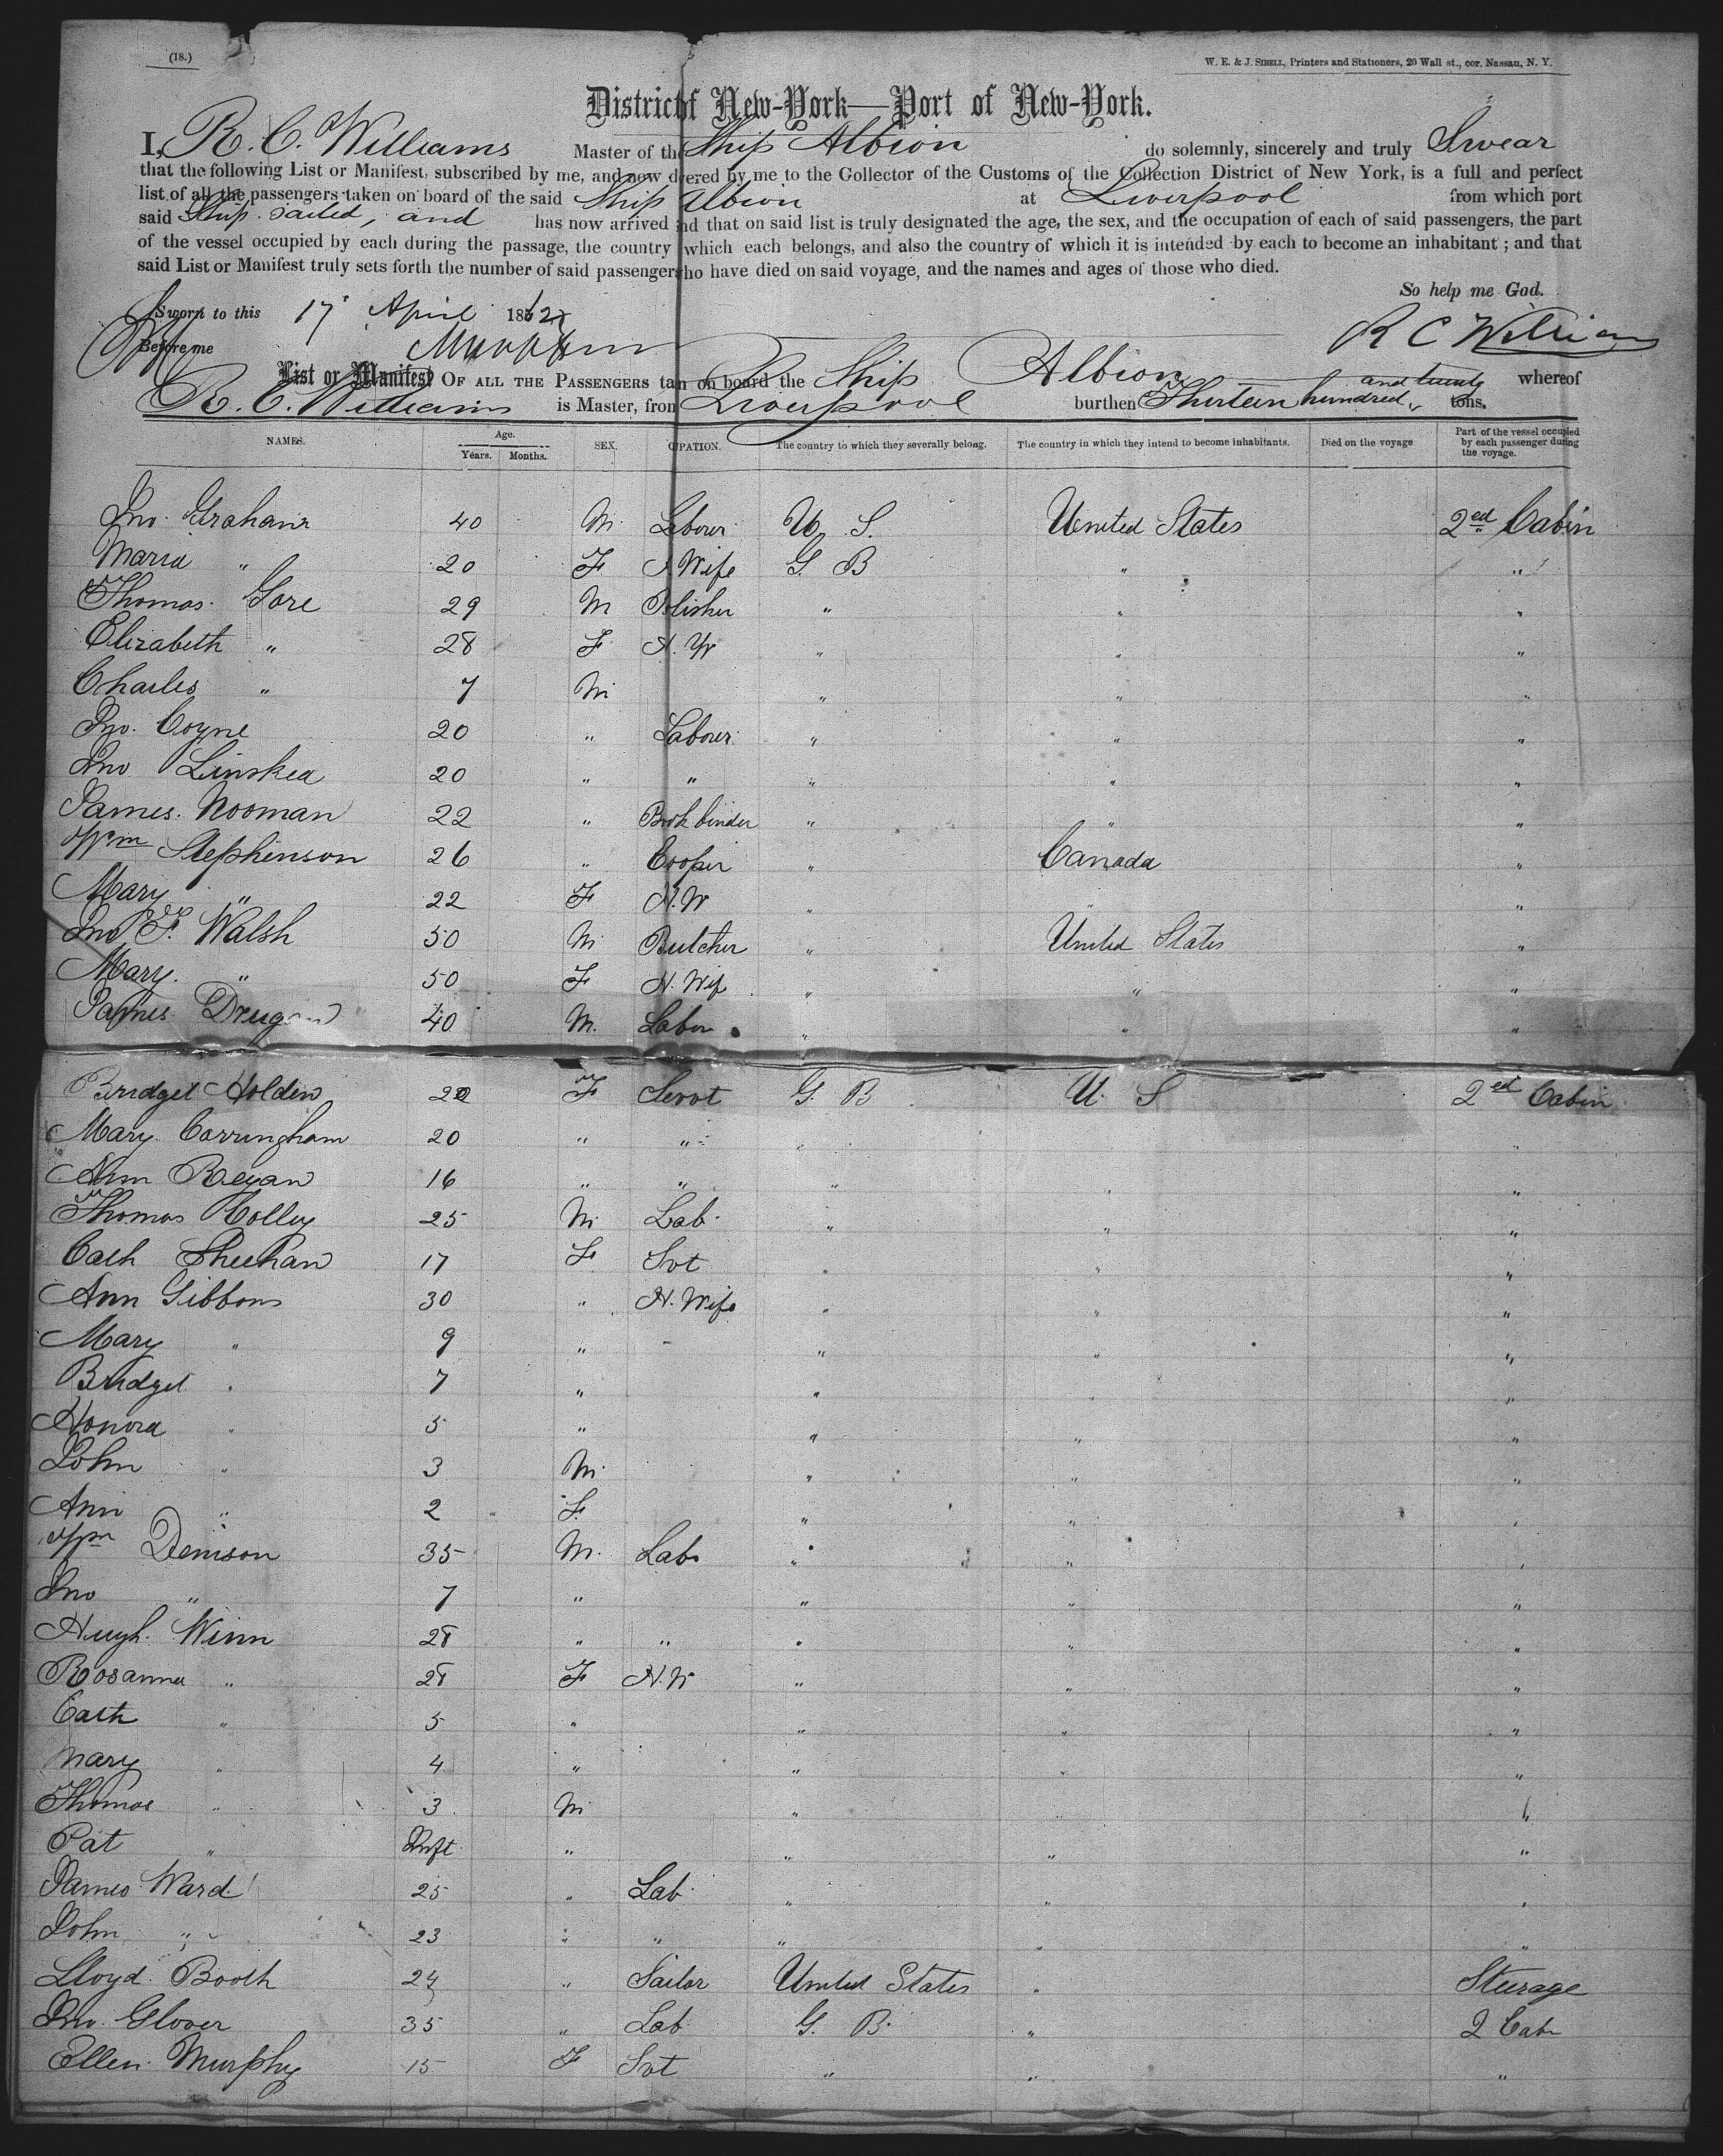 (18.)
W. E. & J. SIBELL, Printers and Stationers, 20 Wall st., cor. Nassau, N. Y.
District of New-York—Port of New-York.
I, R. C. Williams Master of the Ship Albion do solemnly, sincerely and truly Swear
that the following List or Manifest, subscribed by me, and now d ered by me to the Collector of the Customs of the Collection District of New York, is a full and perfect
list of all the passengers taken on board of the said Ship Albion at Liverpool from which port
said Ship sailed, and has now arrived nd that on said list is truly designated the age, the sex, and the occupation of each of said passengers, the part
of the vessel occupied by each during the passage, the country which each belongs, and also the country of which it is intended by each to become an inhabitant; and that
said List or Manifest truly sets forth the number of said passengers ho have died on said voyage, and the names and ages of those who died.
So help me God.
Sworn to this 17 April 1862
R C Williams
Before me
List or Manifest OF ALL THE PASSENGERS ta n on board the Ship Albion whereof
R. C. Williams is Master, from Liverpool burthen Thirteen hundred and twenty tons.
NAMES. Age. Years. Months. SEX. O UPATION. The country to which they severally belong. The country in which they intend to become inhabitants. Died on the voyage Part of the vessel occupied by each passenger during the voyage.
Jno. Graham 40 M. Labour U. S. United States 2ed Cabin
Maria " 20 F H Wife G. B " "
Thomas Gore 29 M Polisher " " "
Elizabeth " 28 F H. W " " "
Charles " 7 M " " "
Jno. Coyne 20 " Labour " " "
Jno Linskea 20 " " " " "
James. Nooman 22 " Book binder " " "
Wm Stephenson 26 " Cooper " Canada "
Mary " 22 F H. W " " "
Jno F. Walsh 50 M Butcher " United States "
Mary. " 50 F H. Wif " " "
James 40 M. Labou " " "
Bridget Holden 22 F Servt G. B U. S 2ed Cabin
Mary Carringham 20 " " " "
Ann Regan 16 " " " " "
Thomas Colley 25 M Lab " " "
Cath Sheehan 17 F Svt " " "
Ann Gibbons 30 " H. Wife " " "
Mary " 9 " - " " "
Bridget " 7 " " " "
Honora " 5 " " " "
John " 3 M. " " "
Ann " 2 F. " " "
Wm Denison 35 M. Lab " " "
Jno " 7 " " " "
Hugh. Winn 28 " " " " "
Rosanna " 28 F H. W " " "
Cath " 5 " " " "
Mary " 4 " " " "
Thomas " 3 M " " "
Pat " Inft " " " "
James Ward 25 " Lab " " "
John " 23 " " " " "
Lloyd Booth 24 " Sailor United States " Steerage
Jno. Glover 35 " Lab G. B. " 2 Cabn
Ellen Murphy 15 F Svt " " "